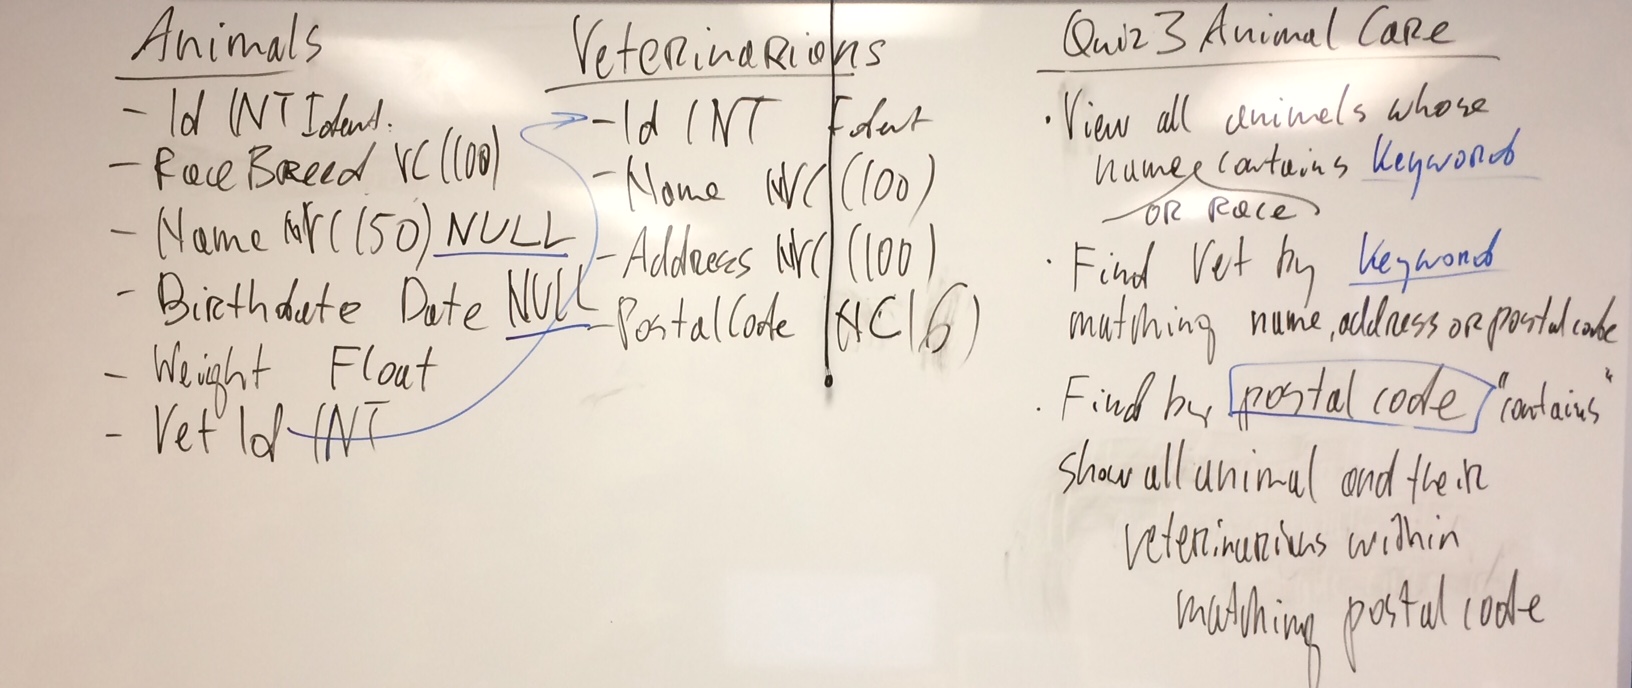 Animals
- Id INT Ident.
- RaceBreed VC(100)
- Name NVC(50) NULL
- Birthdate Date NULL
- Weight Float
- Vet Id INT
Veterinarians
- Id INT Ident
- Name NVC(100)
- Address NVC(100)
- PostalCode NC(6)
Quiz 3 Animal Care
· View all animals whose
name contains Keyword
OR Race
· Find Vet by Keyword
matching name, address or postal code
· Find by postal code "contains"
show all animal and their
veterinarians within
matching postal code